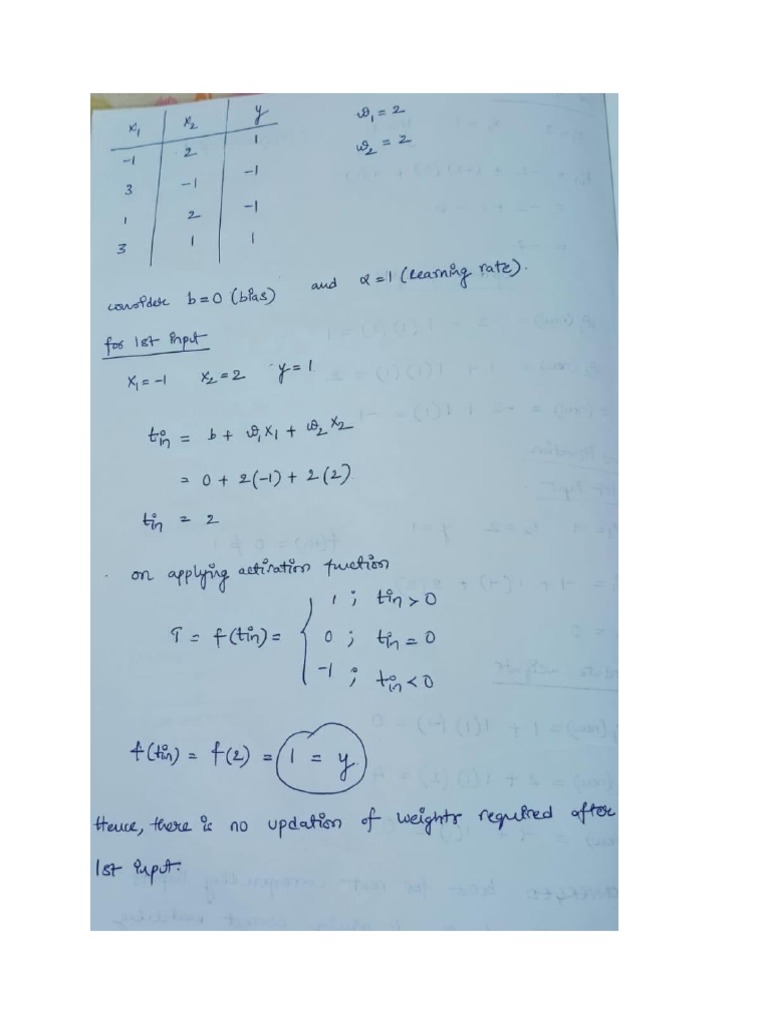 x₁ x₂ y w₁ = 2
-1 2 1 w₂ = 2
3 -1 -1
1 2 -1
3 1 1
consider b=0 (bias) and α=1 (Learning rate).
for 1st input
x₁=-1 x₂=2 y=1
tin = b + w₁x₁ + w₂x₂
= 0 + 2(-1) + 2(2)
tin = 2
on applying activation function
1 ; tin > 0
T = f(tin) = { 0 ; tin = 0
-1 ; tin < 0
f(tin) = f(2) = 1 = y
Hence, there is no updation of weights required after
1st input.